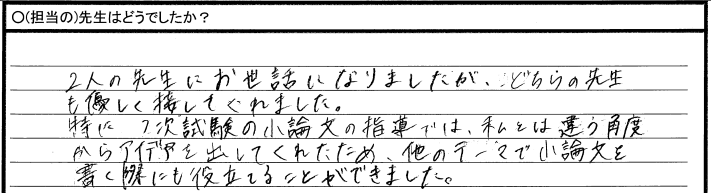 〇(担当の)先生はどうでしたか？
2人の先生にお世話になりましたが、どちらの先生
も優しく接してくれました。
特に 2次試験の小論文の指導では、私とは違う角度
からアイデアを出してくれたため、他のテーマで小論文を
書く際にも役立てることができました。